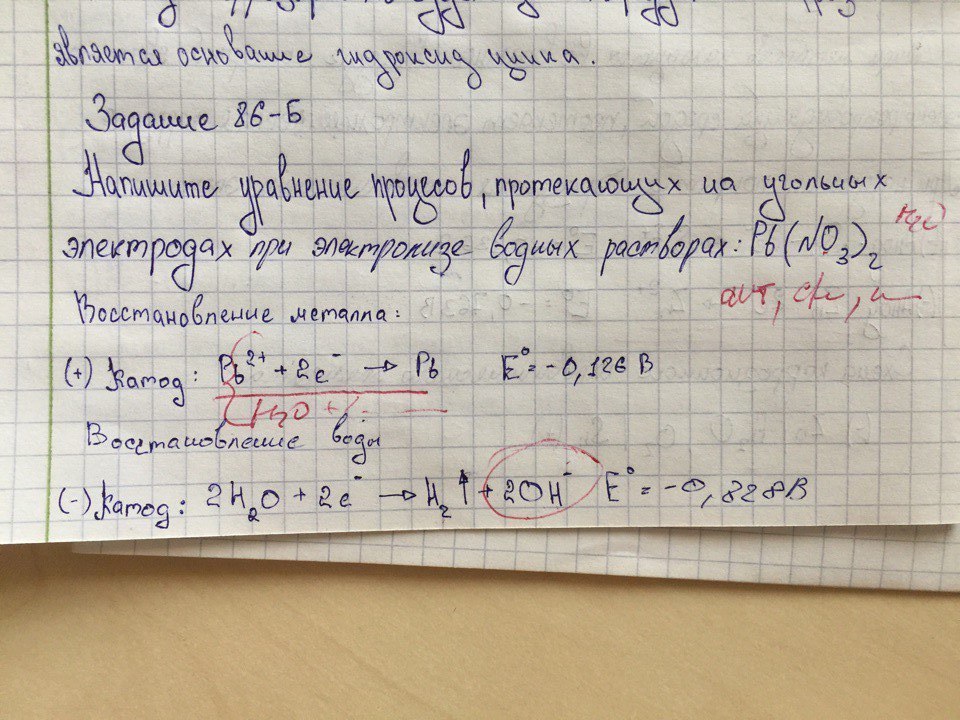 является основание гидроксид цинка.
Задание 86-Б
Напишите уравнение процесов, протекающих на угольных
электродах при электролизе водных растворах: Pb(NO₃)₂
H₂O
Восстановление металла:
(+) Катод: Pb²⁺ + 2e⁻ → Pb E° = -0,126 В
H₂O +
Восстановление воды
(-) Катод: 2H₂O + 2e⁻ → H₂↑ + 2OH⁻ E° = -0,828 В